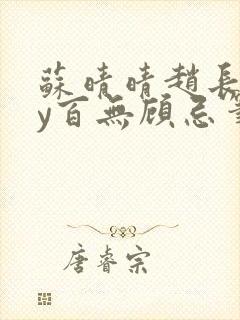 蘇晴晴趙長
y百無顧忌
唐睿宗